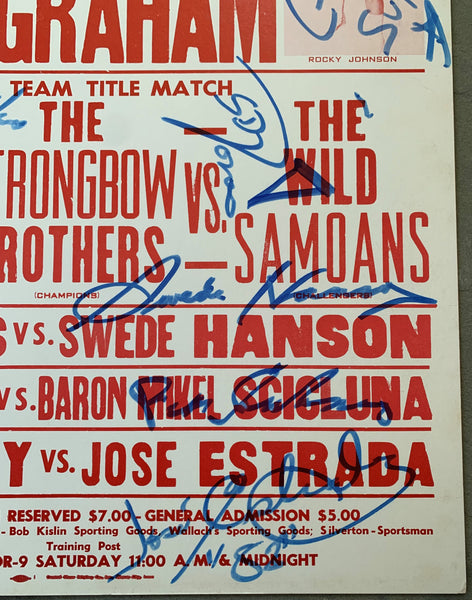 GRAHAM
ROCKY JOHNSON
TEAM TITLE MATCH
THE — THE
TRONGBOW VS. WILD
ROTHERS — SAMOANS
(CHAMPIONS) (CHALLENGERS)
Swede Hanson
S VS. SWEDE HANSON
VS. BARON MIKEL SCICLUNA
Y VS. JOSE ESTRADA
Jose Estrada
RESERVED $7.00 - GENERAL ADMISSION $5.00
- Bob Kislin Sporting Goods, Wallach's Sporting Goods; Silverton-Sportsman
Training Post
OR-9 SATURDAY 11:00 A.M. & MIDNIGHT